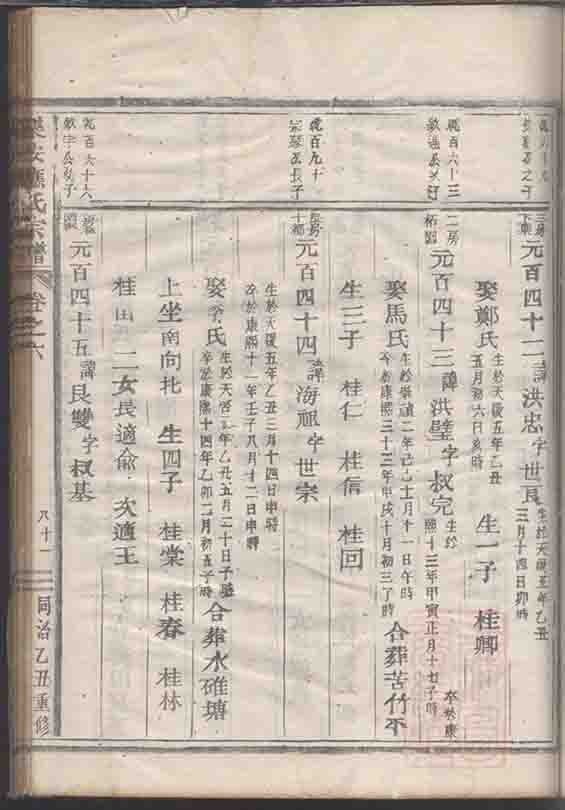 三房
元百四十二 諱 洪忠 字 世良 生於天啟五年乙丑
三月十四日卯時
娶鄭氏 生於天啟五年乙丑
五月初六日亥時 生一子 桂卿
乾百六十三
二房
元百四十三 諱 洪璧 字 叔完 生於
卒於康
熙十三年甲寅正月十七子時
娶馬氏 生於崇禎二年己巳十一月十一日午時
卒於康熙三十三年甲戌十月初三丁時 合葬苦竹平
生三子 桂仁 桂信 桂回
乾百九十
宗琴公長子
元百四十四 諱 海祖 字 世宗
生於天啟五年乙丑三月十四日申時
卒於康熙十一年壬子八月十二日申時
娶李氏 生於天啟五年乙丑五月二十日子時
卒於康熙十四年乙卯二月初五子時 合葬水碓塘
上坐南向北 生四子 桂棠 桂春 桂林
桂山 二女長適俞 次適王
乾百六十六
元百四十五 諱 良雙 字 叔基
氏宗譜 卷之六
八十一
同治乙丑重修